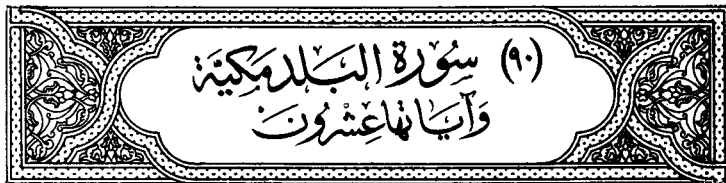 (٩٠) سُورَة البَلَد مَكيَّة
وَآيَاتهَا عِشْرُونَ